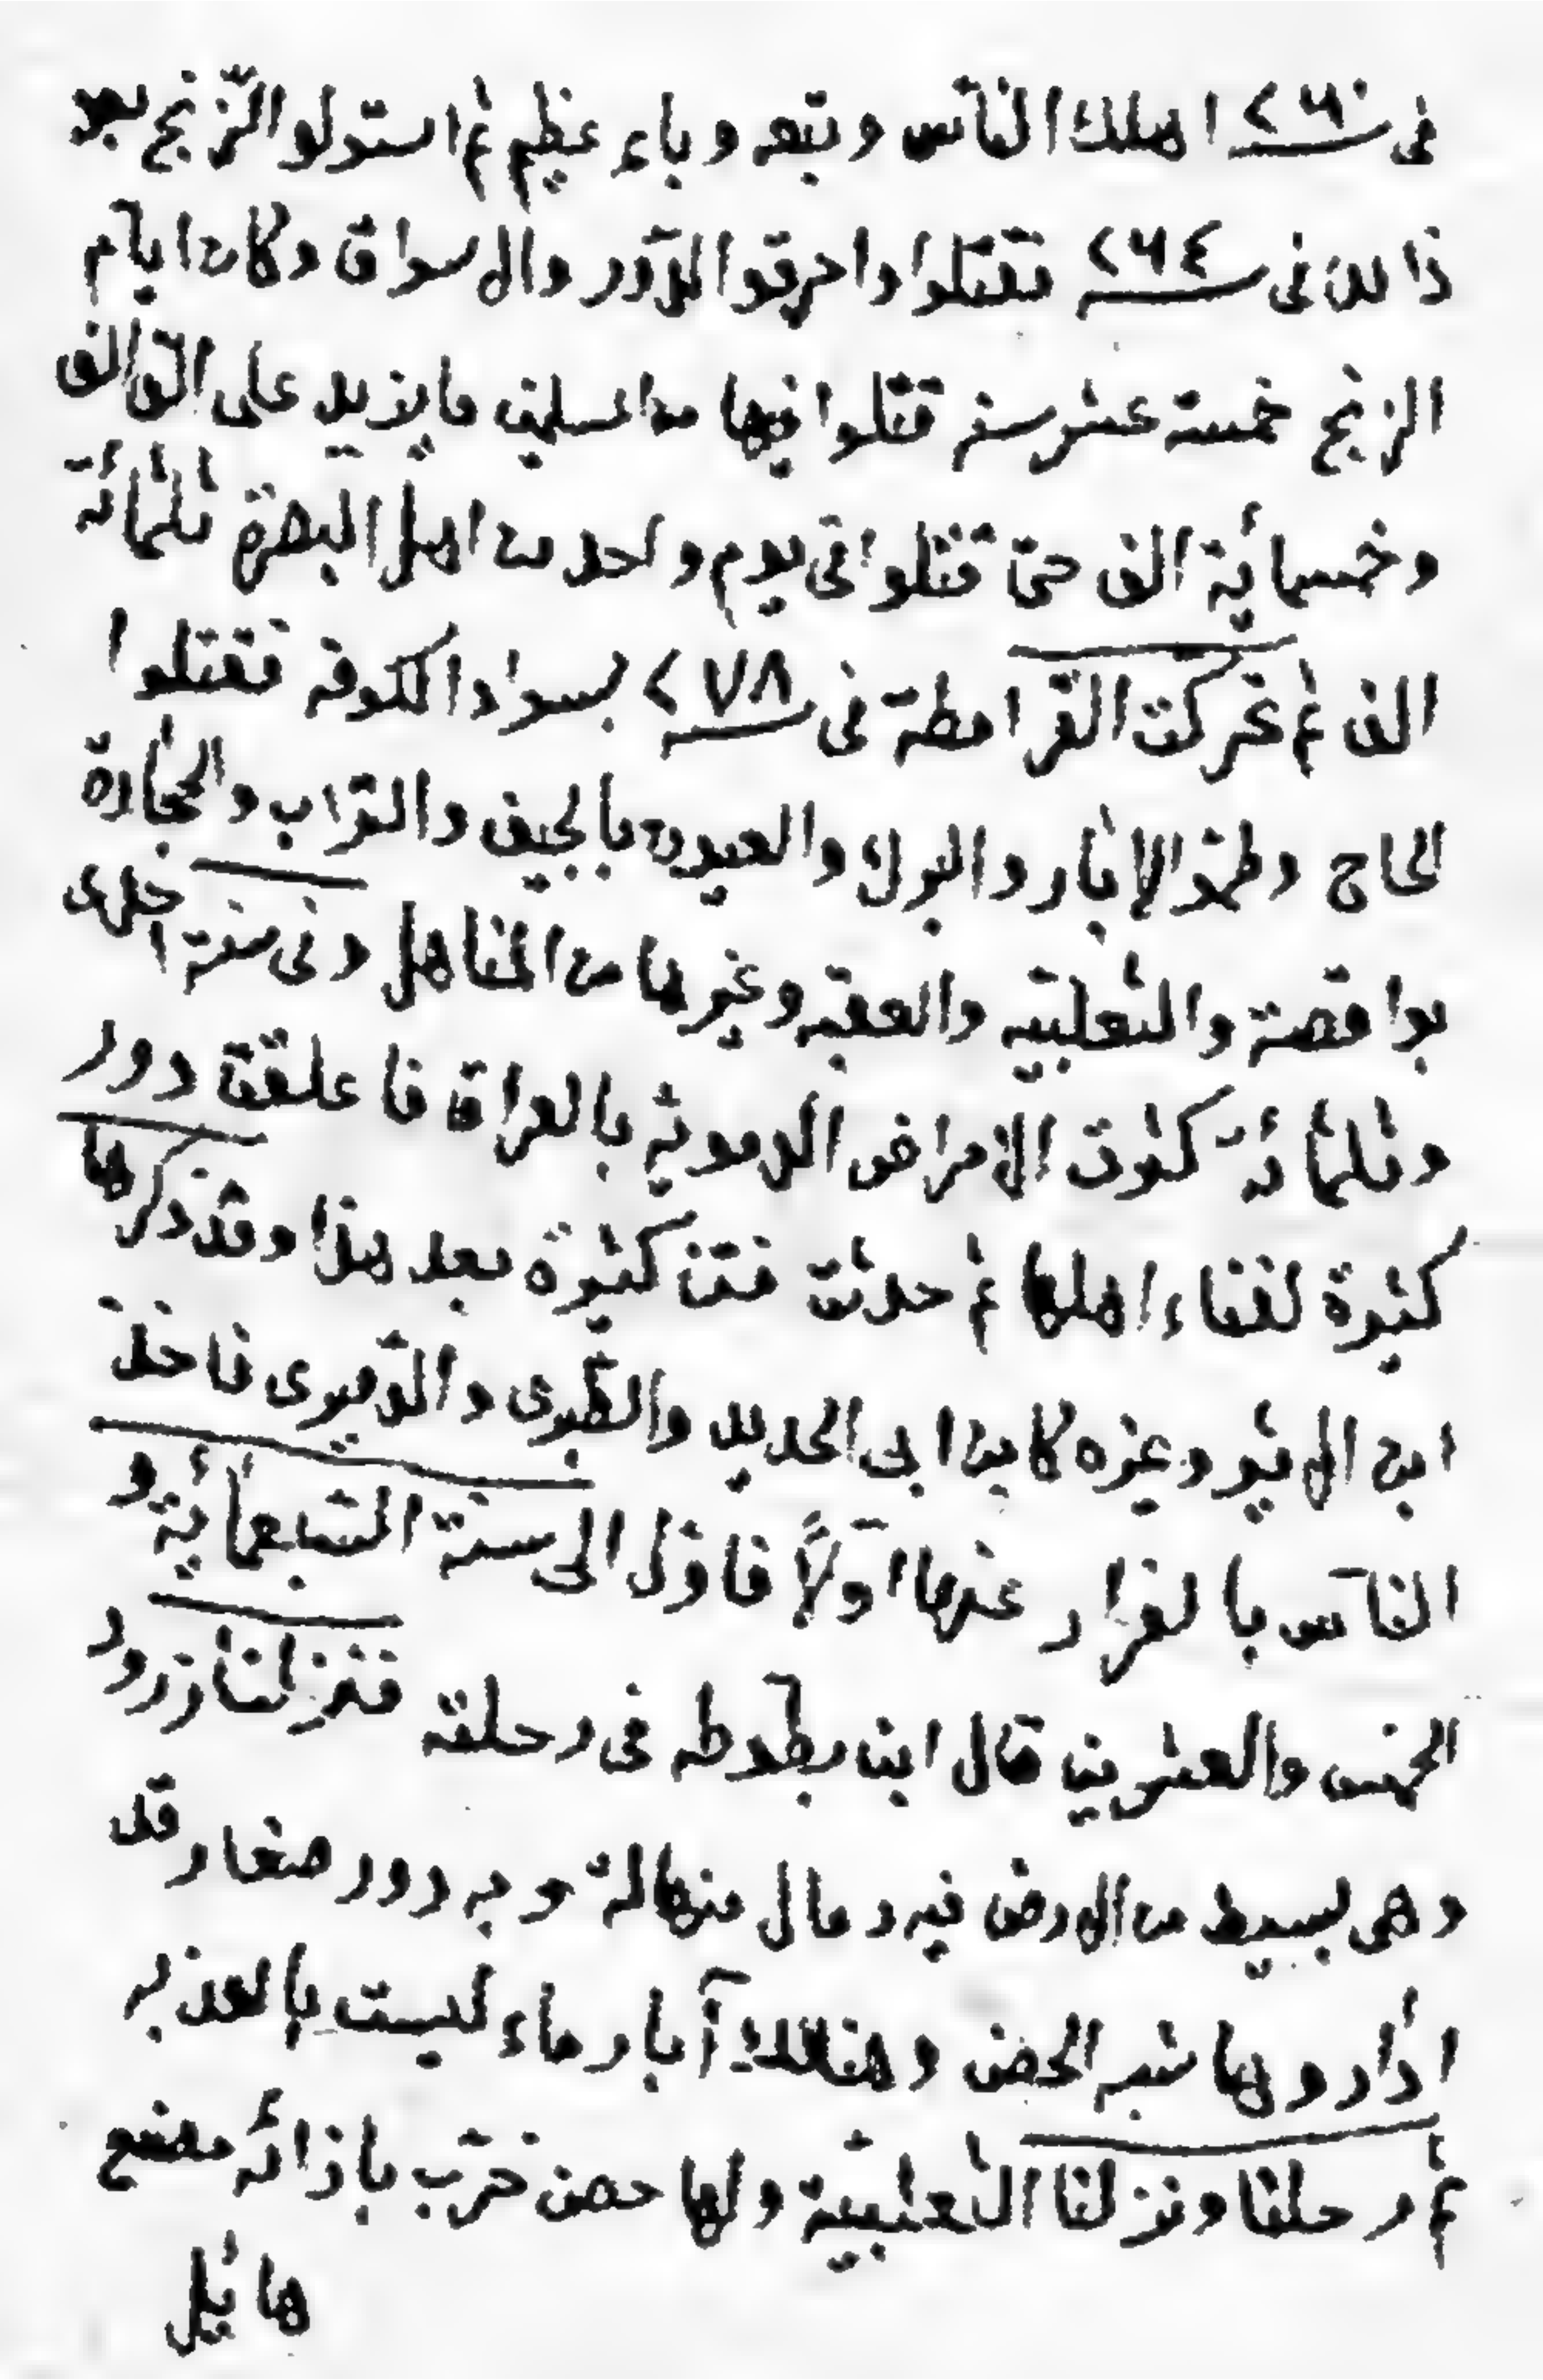 فى سنة ٢٦٠ اهلك النّاس وتبعه وباء عظيم ثم استولو الزّنج بعد
ذالك فى سنة ٢٦٤ تقتلوا واحرقوا الدّور والاسواق وكان ايّام
الزنج خمسة عشر سنه قتلوا فيها من المسلمين ما يزيد على الف الف
وخمسمائية الف حتى قتلوا فى يوم واحد من اهل البصرة ثلثمائة
الف ثم تحركت القرامطة فى سنة ٢٧٨ بسواد الكوفه تقتلوا
الحاج وطمّو الابار والبرك والعيون بالجيف والتراب والحجارة
بواقصة والثعلبيّه والعقبه وغيرها من المناهل وفى سنة احدى
وثلثمائة كثرت الامراض الدمويّه بالعراق فاغلقت دور
كثيرة لفناء اهلها ثم حدثت فتن كثيرة بعد هذا وقد ذكرها
ابن الاثير وغيره كابن ابى الحديد والطّبرى والدّميرى فاخذ
النّاس بالفرار عنها اوّلاً فاوّل الى سنة السّبعمائية و
الخمس والعشرين قال ابن بطّوطه فى رحلته فنزلنا زرود
وهى بسيط من الارض فيه رمال منهالة وبه دور صغار قد
اداروها شبه الحصن وهنالك آبار ماء ليست بالعذبه
ثم رحلنا ونزلنا الثّعلبيّة ولها حصن خرب بازائه مصنع
هائل